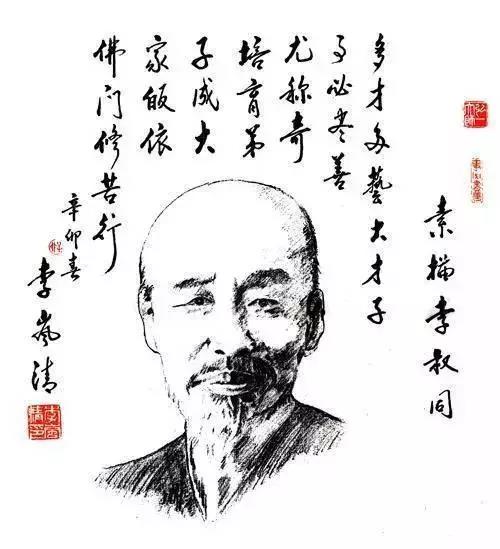 弘一大师
素描李叔同
多才多藝大才子
事必尽善
尤称奇
培育弟
子成大
家皈依
佛门修苦行
辛卯春
李岚清